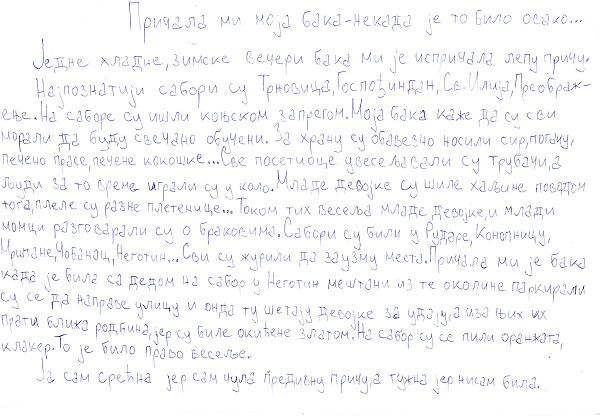 Причала ми моја бака-некада је то било овако...
Једне хладне, зимске вечери бака ми је испричала лепу причу.
Најпознатији сабори су Трновица, Госпођиндан, Св. Илија, Преображ-
ење. На саборе су ишли коњском запрегом. Моја бака каже да су сви
морали да буду свечано обучени. За храну су обавезно носили сир, погачу,
печено прасе, печене кокошке... Све посетиоце увесељавали су трубачи, а
људи за то време играли су у коло. Младе девојке су шиле хаљине поводом
тога, плеле су разне плетенице... Током тих весеља младе девојке, и млади
момци разговарали су о браковима. Сабори су били у Рударе, Конопницу,
Мрпане, Чобанац, Неготин... Сви су журили да заузму места. Причала ми је бака
када је била са дедом на сабор у Неготин мештани из те околине паркирали
су се да направе улицу и онда ту шетају девојке за удају, а иза њих их
прати ближа родбина, јер су биле окићене златом. На сабор су се пили оранжата,
клакер. То је било право весеље.
Ја сам срећна јер сам чула предивну причу, а тужна јер нисам била.